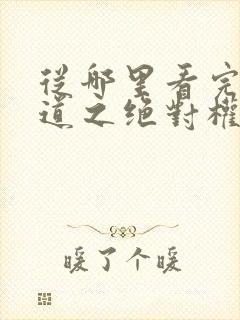 從哪里看完
道之绝對權
暖了个暖